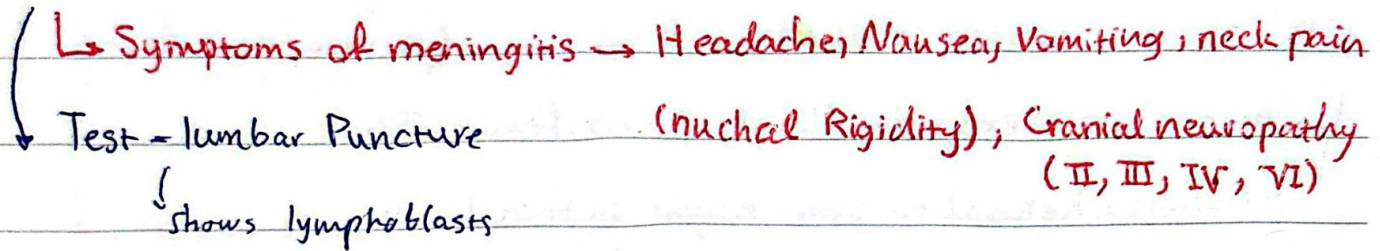 ↳ Symptoms of meningitis → Headache, Nausea, Vomiting, neck pain
(nuchal Rigidity), Cranial neuropathy
(II, III, IV, VI)
Test - lumbar Puncture
shows lymphoblasts